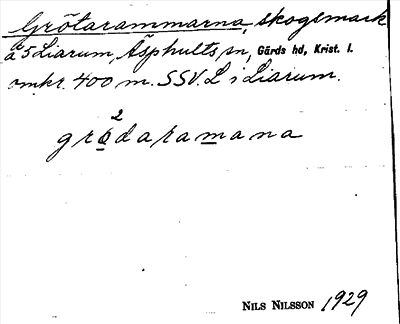 Grötarammarna, skogsmark
å 5 Liarum, Äsphults sn, Gärds hd, Krist. l.
omkr. 400 m. SSV. L i Liarum.
grò²daramana
NILS NILSSON 1929